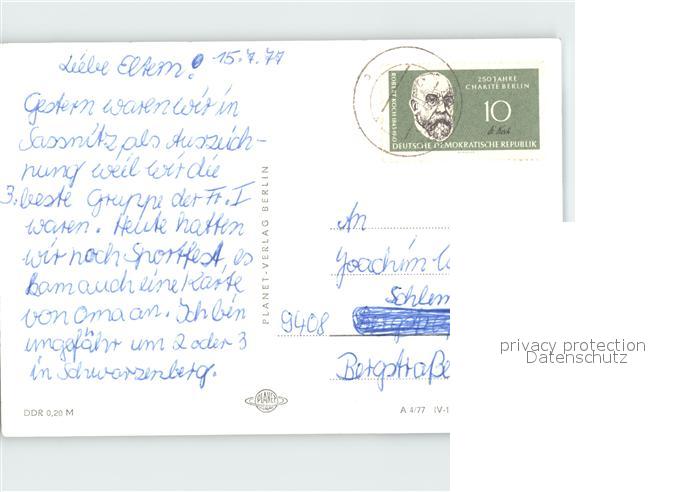 Liebe Eltern! 15.7.77
Gestern waren wir in
Sassnitz, als Auszeich-
nung weil wir die
3. beste Gruppe der Fr. I
waren. Heute hatten
wir noch Sportfest, es
kam auch eine Karte
von Oma an. Ich bin
ungefähr um 2 oder 3
in Schwarzenberg.
PLANET-VERLAG BERLIN
DDR 0,20 M
PLANET
A 4/77 IV-1
ROBERT KOCH 1843-1910
250 JAHRE
CHARITÉ BERLIN
10
DEUTSCHE DEMOKRATISCHE REPUBLIK
An
Joachim
9408 Schlem
Bergstraße
privacy protection
Datenschutz